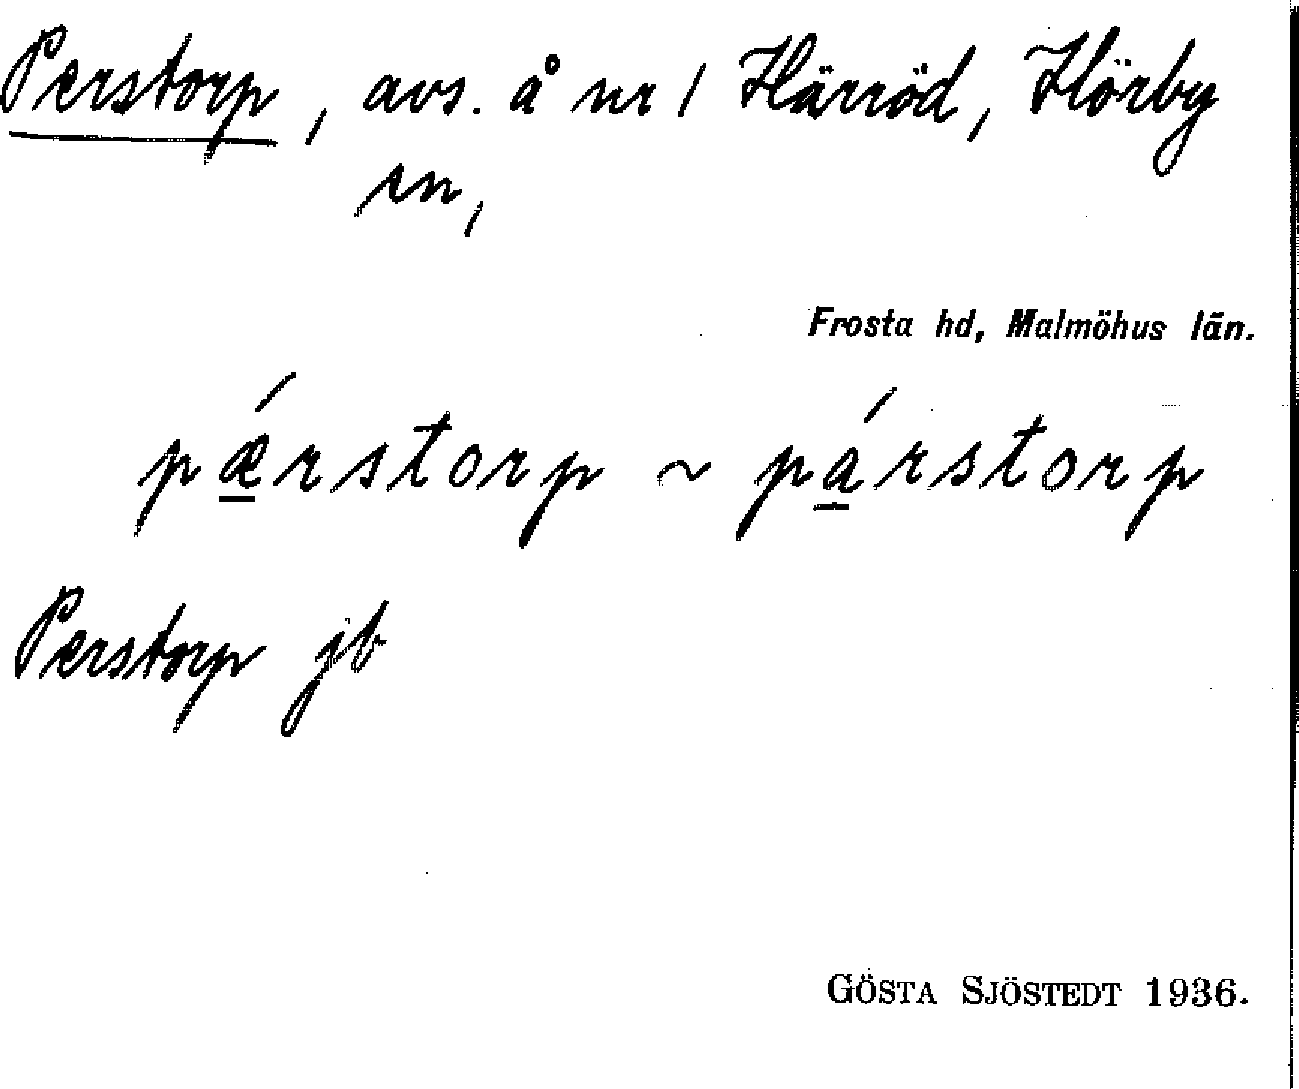 Perstorp, avs. å nr 1 Härröd, Hörby
sn,
Frosta hd, Malmöhus län.
pǽrstorp ~ párstorp
Perstorp jb
GÖSTA SJÖSTEDT 1936.